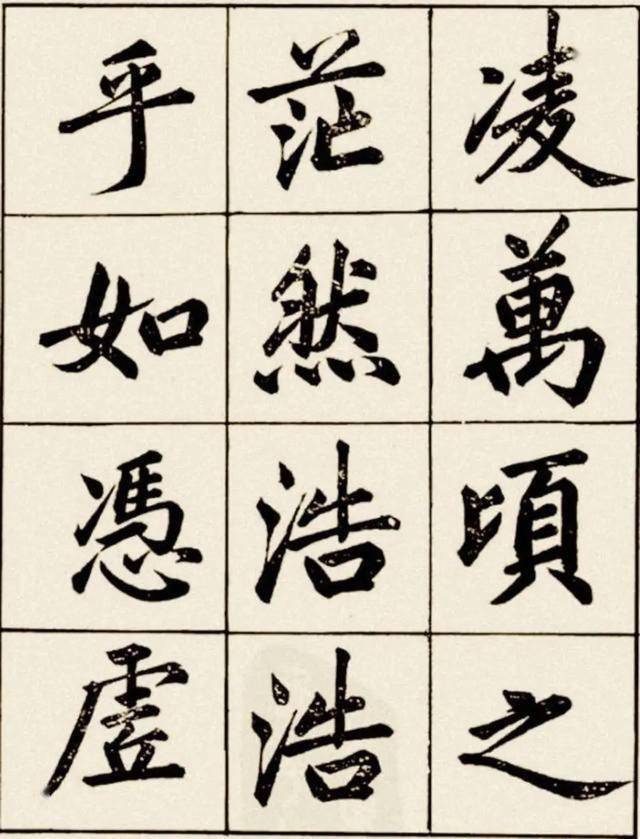 凌萬頃之
茫然浩浩
乎如憑虛